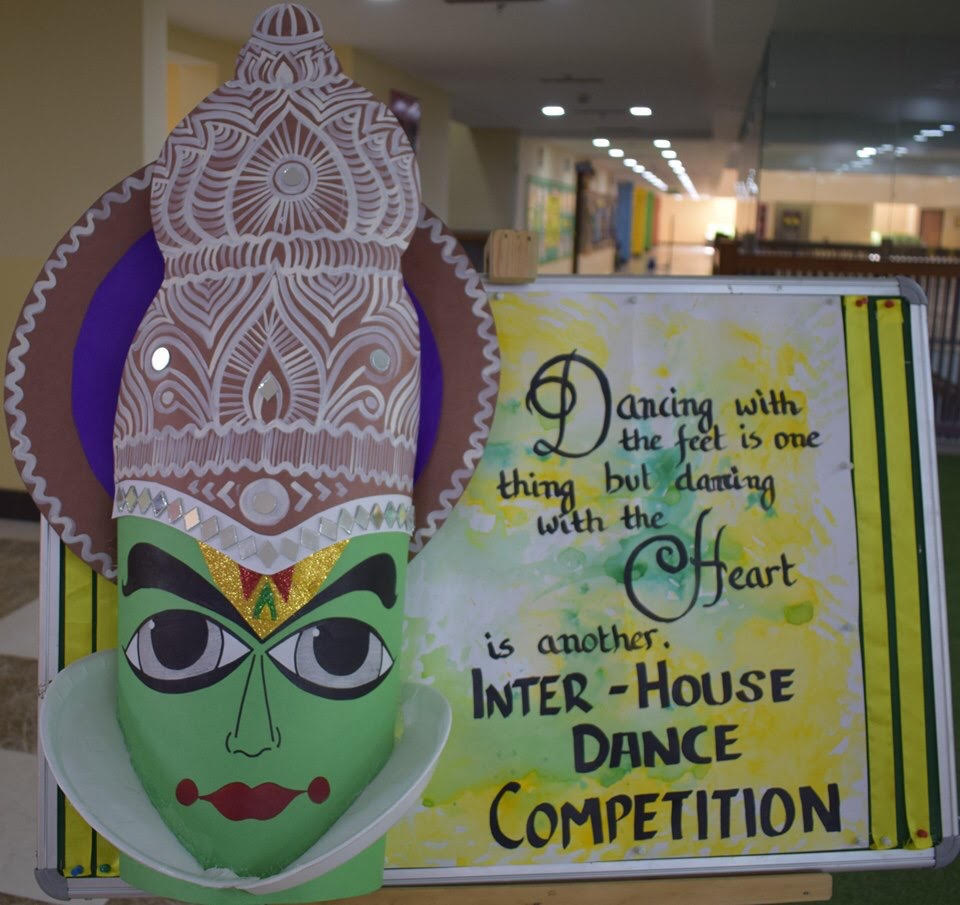 Dancing with
the feet is one
thing but dancing
with the
Heart
is another.
INTER-HOUSE
DANCE
COMPETITION